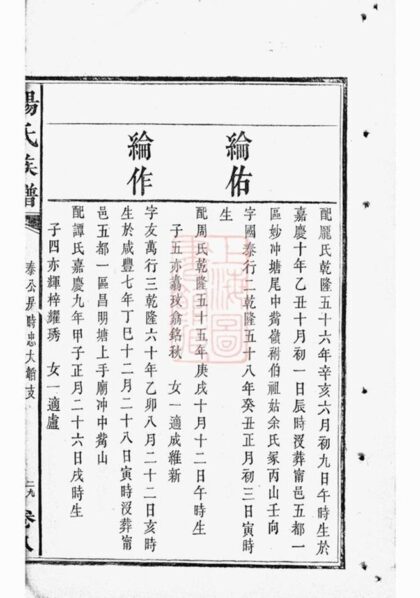 配龎氏乾隆五十六年辛亥六月初九日午時生於
嘉慶十年乙丑十月初一日辰時沒葬甯邑五都一
區妙沖塘尾中嘴嶺祔伯祖姑余氏冢丙山壬向
綸佑
字國泰行二乾隆五十八年癸丑正月初三日寅時
生
配周氏乾隆五十五年庚戌十月十二日午時生
子五亦嘉玟 銘秋 女一適成維新
綸作
字友萬行三乾隆六十年乙卯八月二十二日亥時
生於咸豐七年丁巳十二月二十八日寅時沒葬甯
邑五都一區昌明塘上手廟沖中嘴山
配譚氏嘉慶九年甲子正月二十六日戌時生
子四亦輝梓耀琇 女一適盧
楊氏族譜
泰公房時忠大 支
卷八
上海圖書館